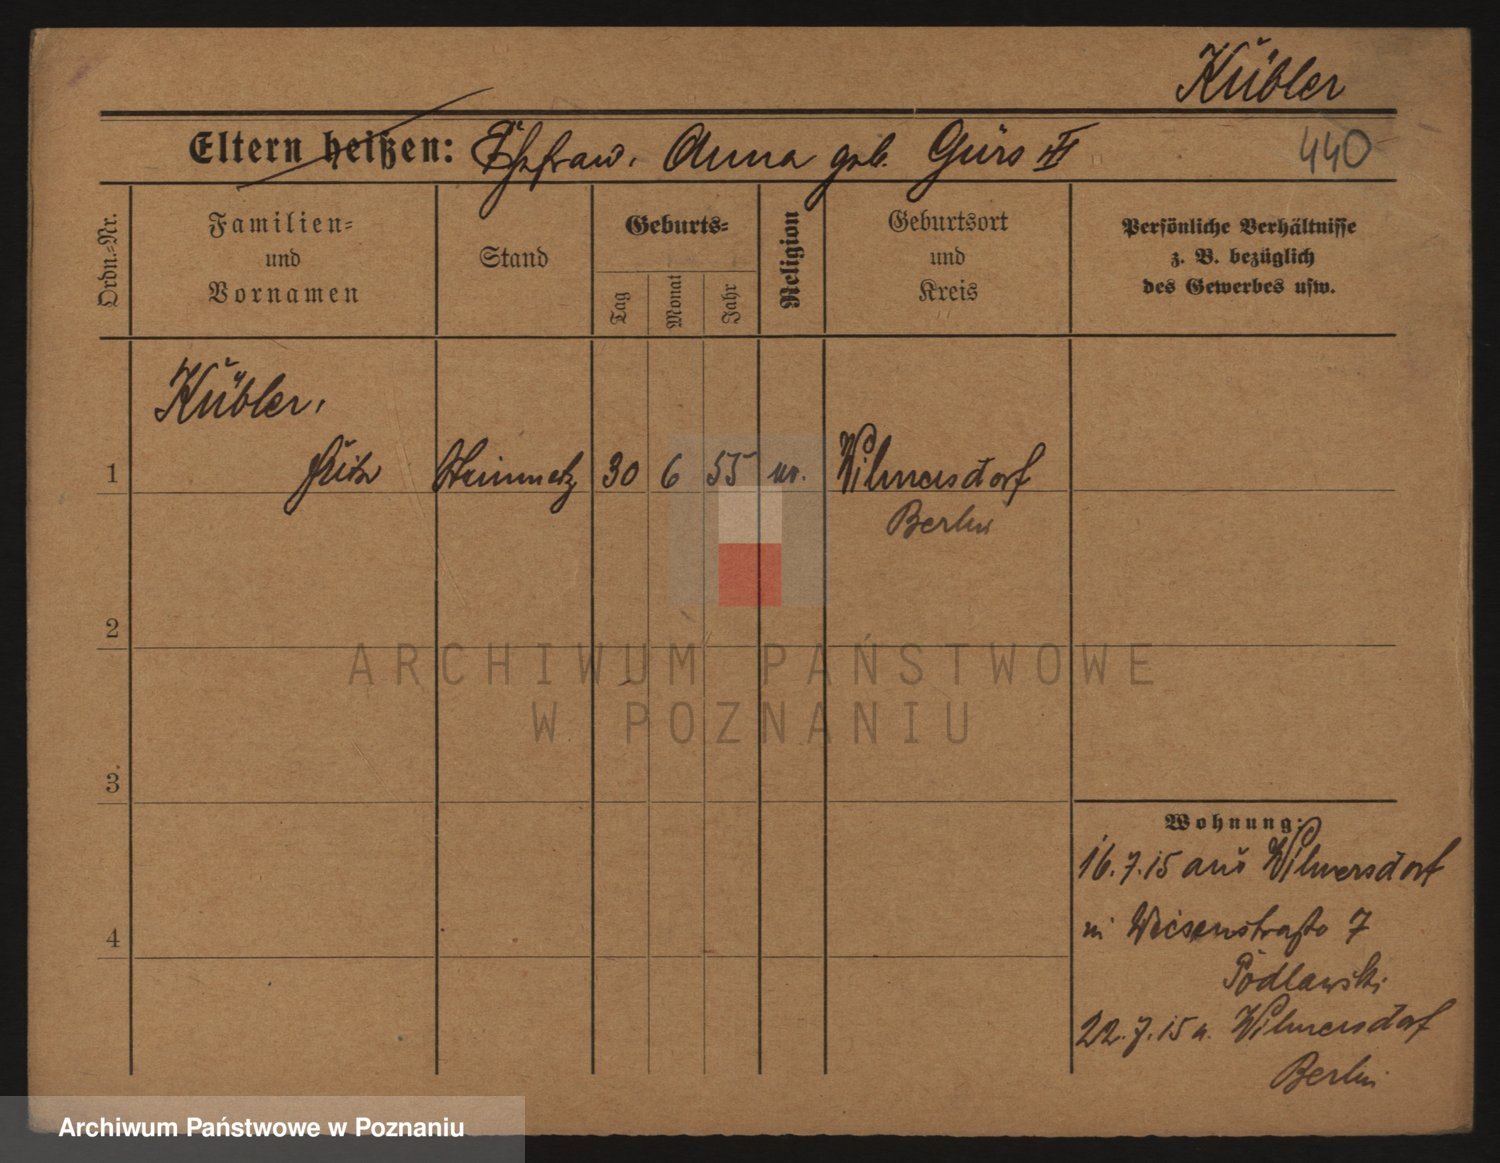 Kübler
Eltern heißen: Ehefrau. Anna geb. Gürs
440
Ordn.=Nr.
Familien=
und
Vornamen
Stand
Geburts=
Tag
Monat
Jahr
Religion
Geburtsort
und
Kreis
Persönliche Verhältnisse
z. B. bezüglich
des Gewerbes usw.
Kübler,
1 Fritz Steinmetz 30 6 55 Wilmersdorf
Berlin
2
3
4
Wohnung:
16.7.15 aus Wilmersdorf
in 7
Podlawski
22.7.15 n. Wilmersdorf
Berlin
ARCHIWUM PAŃSTWOWE
W POZNANIU
Archiwum Państwowe w Poznaniu